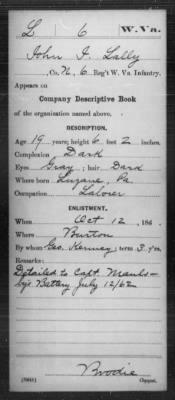 L 6 W. Va.
John I. Lally
, Co. K, 6 Reg't W. Va. Infantry.
Appears on
Company Descriptive Book
of the organization named above.
DESCRIPTION.
Age 19 years; height 6 feet 2 inches.
Complexion Dark
Eyes Gray; hair Dard
Where born Luzane, Pa.
Occupation Laborer
ENLISTMENT.
When Oct 12, 186 .
Where Burton
By whom Geo. Kenney; term 3 y'rs.
Remarks:
Detailed to Capt. Mauls-
by's Battery July 12/62
Brodie
Copyist.